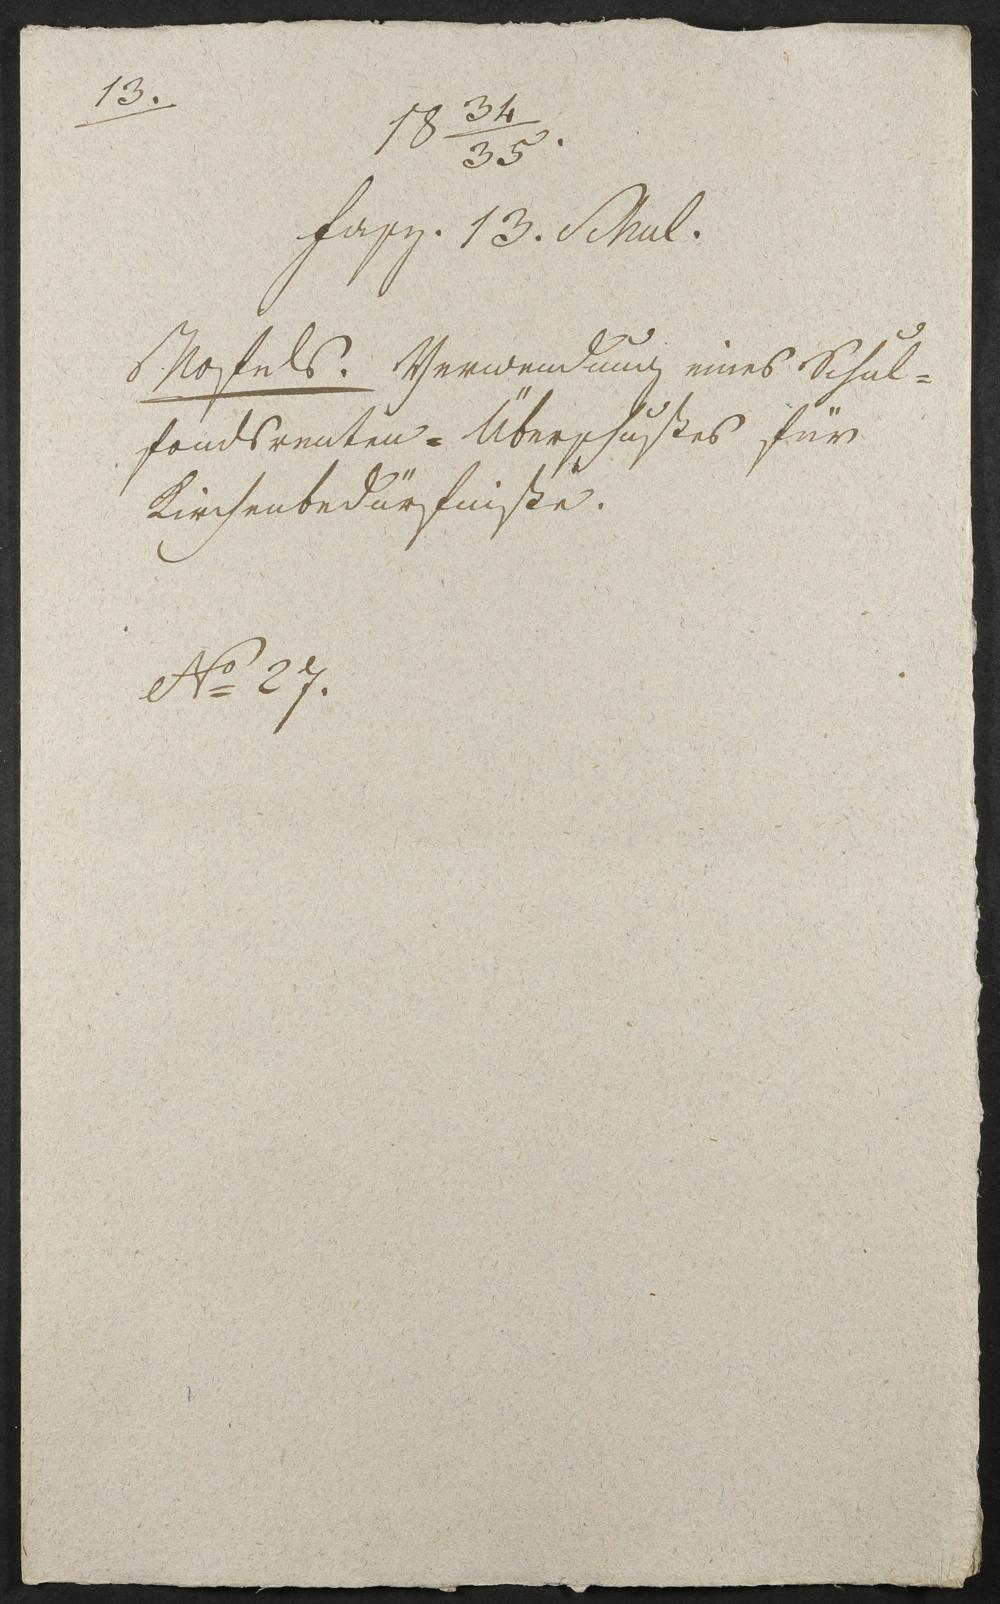 13.
18 34/35.
Fasz. 13. Schul.
Verwendung eines Schul=
fondsrenten=Überschußes für
Kirchenbedürfniße.
No 27.